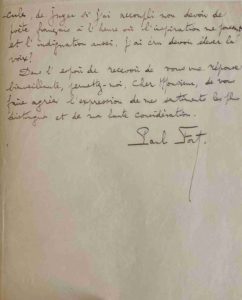 de juger si j'ai accompli mon devoir de
poète français à l'heure où l'inspiration me
et l'indignation aussi, j'ai cru devoir élever la
voix !
Dans l'espoir de recevoir de vous une réponse
bienveillante, permettez-moi, Cher Monsieur, de vous
faire agréer l'expression de mes sentiments les plus
distingués et de ma haute considération.
Paul Fort.